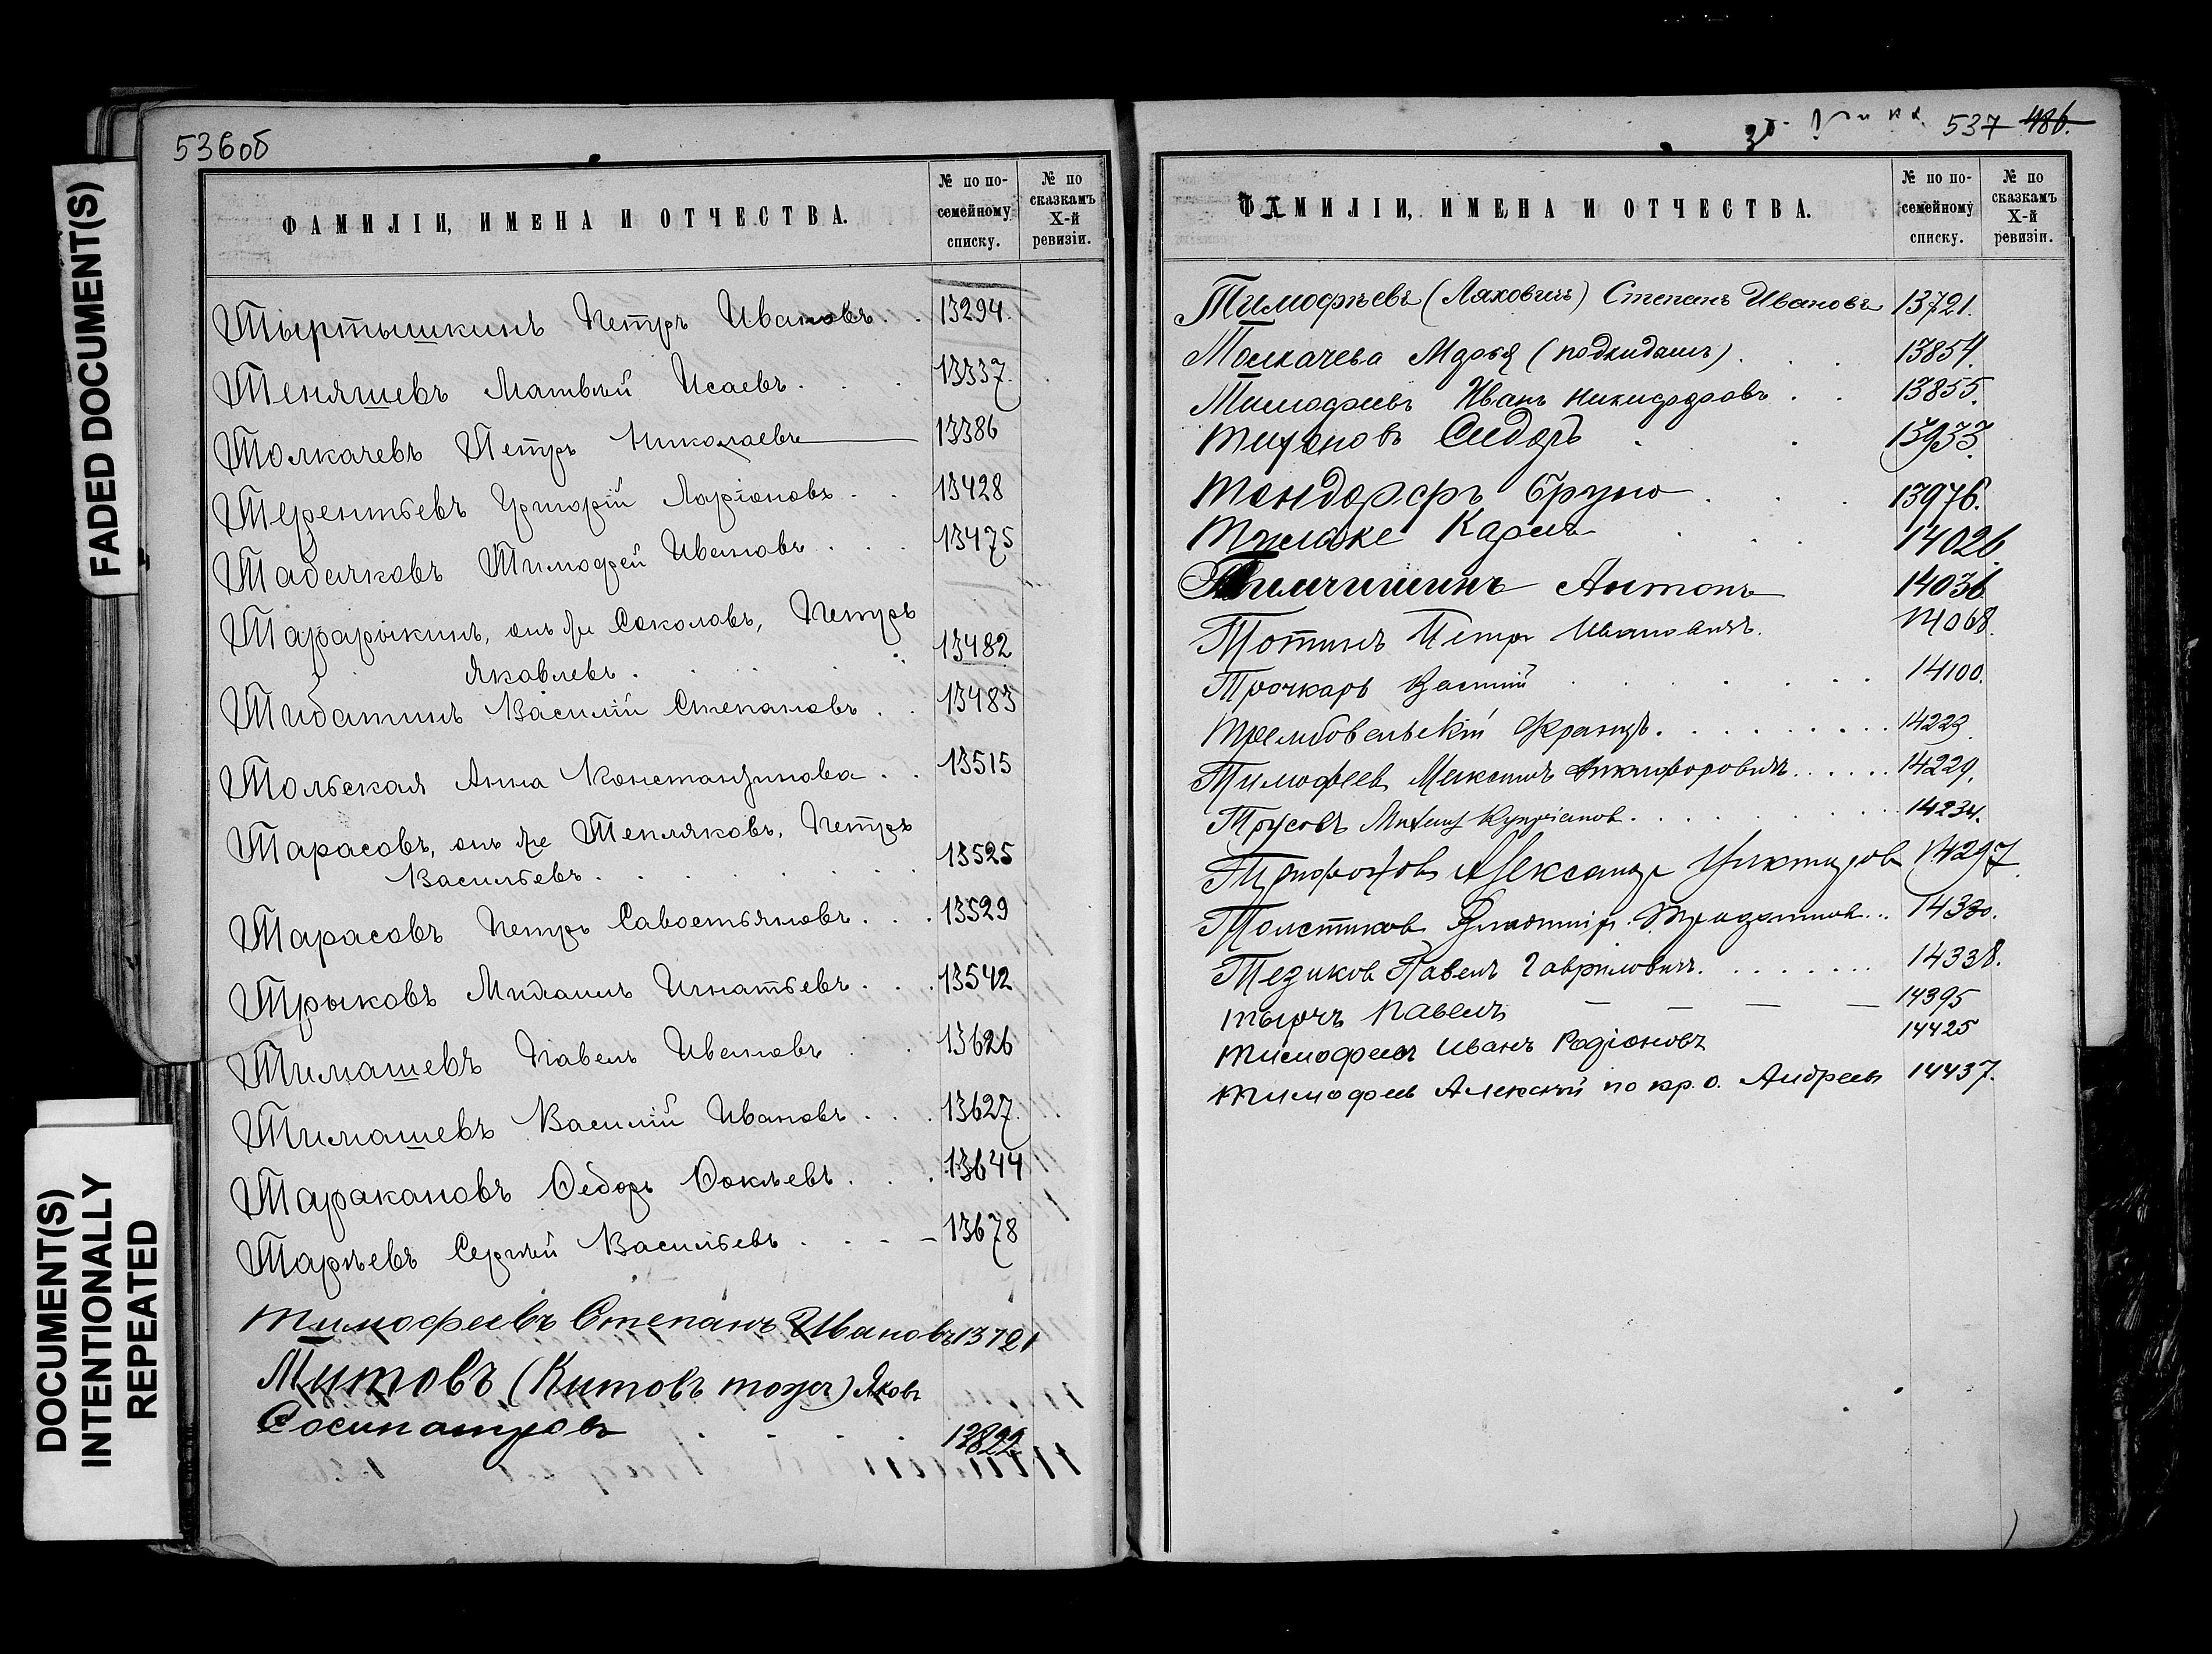 FADED DOCUMENT(S)
DOCUMENT(S)
INTENTIONALLY
REPEATED
536об
ФАМИЛІИ, ИМЕНА И ОТЧЕСТВА.
№ по по-
семейному
списку.
№ по
сказкамъ
X-й
ревизіи.
Тыртышкинъ Петръ Ивановъ . . 13294.
Теняшевъ Матвѣй Исаевъ . . . 13337.
Толкачевъ Петръ Николаевъ 13386
Терентьевъ Григорій Ларіоновъ . . 13428
Табачковъ Тимофей Ивановъ . . . 13475
Тарарыкинъ, онъ же Соколовъ, Петръ
Яковлевъ . . . . 13482
Тибатинъ Василій Степановъ . . 13483
Тольская Анна Константинова . . 13515
Тарасовъ, онъ же Тепляковъ, Петръ
Васильевъ . . . . . . 13525
Тарасовъ Петръ Савостьяновъ . . . 13529
Трыковъ Михаилъ Игнатьевъ . . . 13542
Тимашевъ Павелъ Ивановъ . . 13626
Тимашевъ Василій Ивановъ . . . 13627.
Таракановъ Ѳедоръ Ѳокѣевъ . . . 13644
Тарѣевъ Сергѣй Васильевъ . . . - 13678
Тимофеевъ Степанъ Ивановъ 13721
Титовъ (Китовъ тожъ) Яковъ
Сосипатровъ . . . 13822
537 486.
ФАМИЛІИ, ИМЕНА И ОТЧЕСТВА.
№ по по-
семейному
списку.
№ по
сказкамъ
X-й
ревизіи.
Тимофѣевъ (Ляховичъ) Степанъ Ивановъ 13721.
Толкачева Марья (подкидышъ) . . . 13854.
Тимофеевъ Иванъ Никифоровъ . . 13855.
Тихоновъ Сидоръ . . 13933.
Тондорфъ Бруно . . . 13976.
Карлъ . . . 14026
Антонъ 14036
Тотинъ Петръ Ивановичъ. 14068.
Трочкарь Василій . . . . . . 14100.
Трембовельскій Францъ . . . . . . . . 14223
Тимофеевъ Максимъ Никифоровичъ . . . . . 14229.
Трусовъ Михаилъ Купріанов . . . . . . 14234.
Александръ 14297.
Толстиков Владиміръ . . 14330.
Тезиков Павелъ Гавриловичъ . . . . . . . 14338.
Тырчъ Павелъ — — — — 14395
Тимофеевъ Иванъ Родіоновъ 14425
Тимофеевъ Алексѣй по кр. о. Андреевъ 14437.